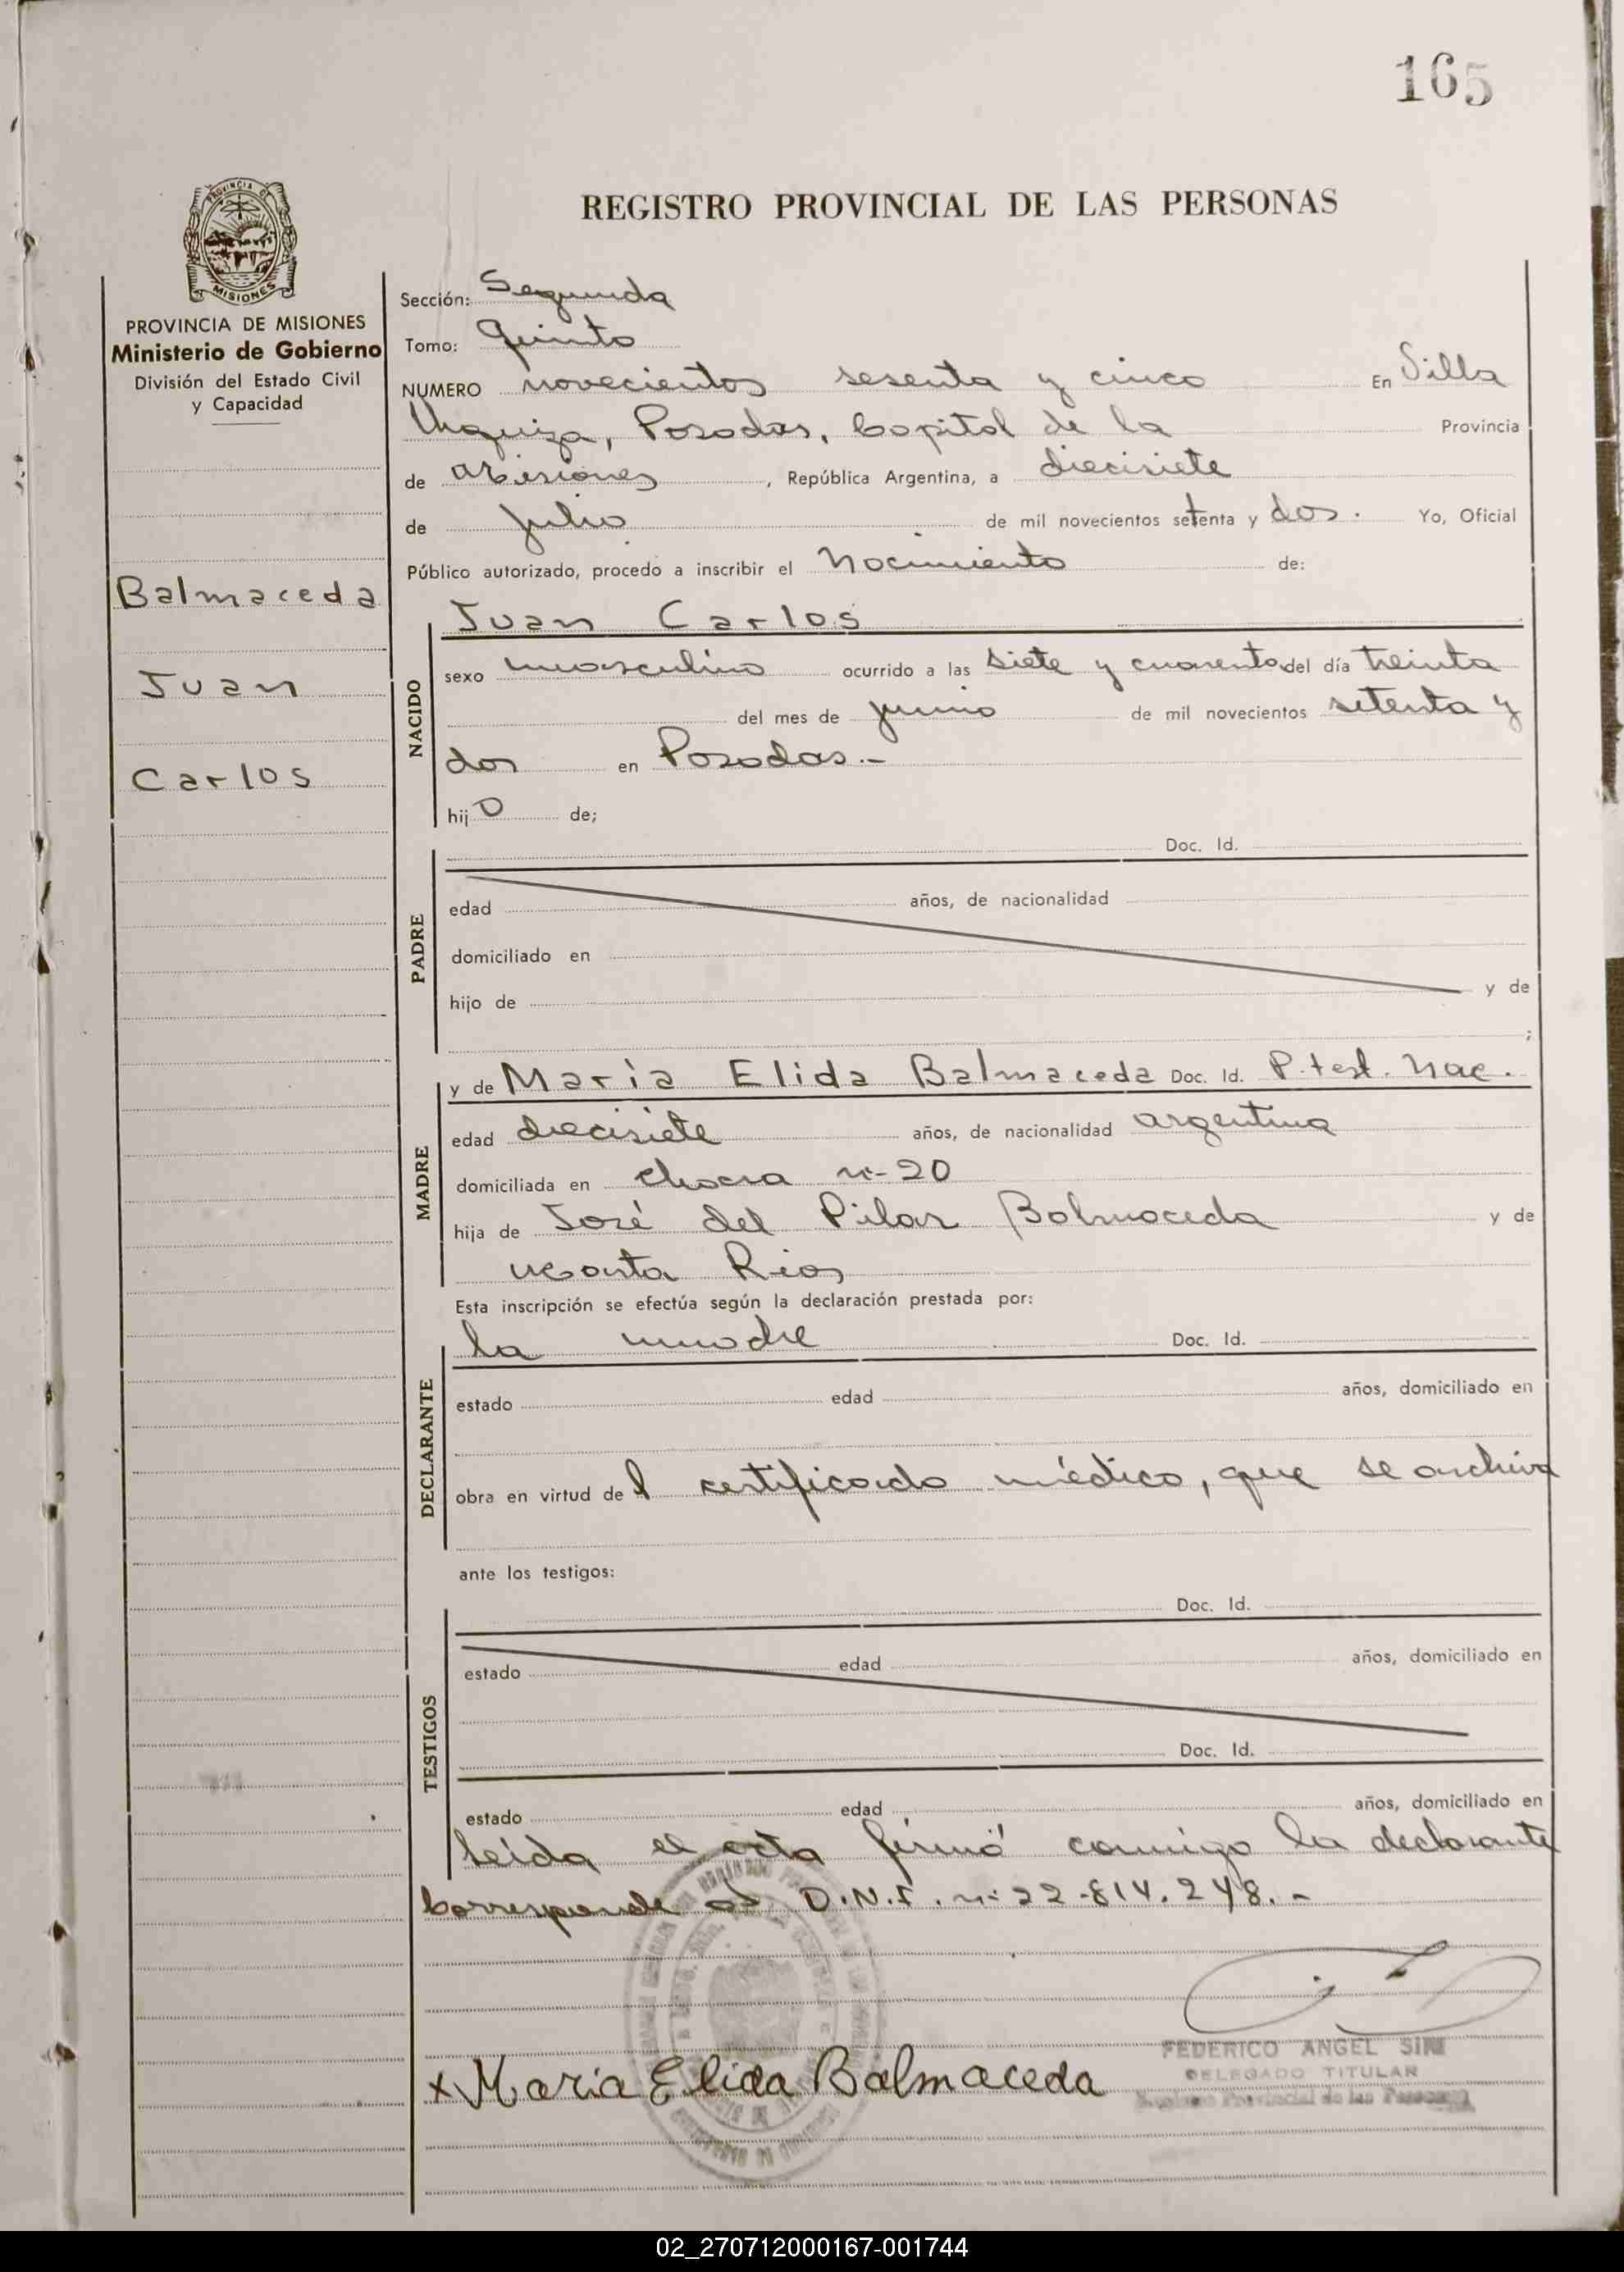 165
REGISTRO PROVINCIAL DE LAS PERSONAS
PROVINCIA DE MISIONES
Ministerio de Gobierno
División del Estado Civil
y Capacidad
Balmaceda
Juan
Carlos
Sección: Segunda
Tomo: Quinto
NUMERO novecientos sesenta y cinco En Villa
Urquiza, Posadas, Capital de la Provincia
de Misiones, República Argentina, a diecisiete
de julio de mil novecientos setenta y dos. Yo, Oficial
Público autorizado, procedo a inscribir el Nacimiento de:
NACIDO
Juan Carlos
sexo masculino ocurrido a las siete y cuarenta del día treinta
del mes de junio de mil novecientos setenta y
dos en Posadas.-
hijo de;
PADRE
Doc. Id.
edad años, de nacionalidad
domiciliado en
hijo de y de
;
MADRE
y de María Elida Balmaceda Doc. Id. P. test. Nac.
edad diecisiete años, de nacionalidad argentina
domiciliada en chacra nº 20
hija de José del Pilar Balmaceda y de
Marta Rios
Esta inscripción se efectúa según la declaración prestada por:
DECLARANTE
la madre Doc. Id.
estado edad años, domiciliado en
obra en virtud del certificado médico, que se archiva
ante los testigos:
TESTIGOS
Doc. Id.
estado edad años, domiciliado en
Doc. Id.
estado edad años, domiciliado en
Leída el acta firmó conmigo la declarante
Corresponde D.N.I. nº 22.814.248.-
x María Elida Balmaceda
FEDERICO ANGEL
DELEGADO TITULAR
Registro Provincial de las Personas
02_270712000167-001744